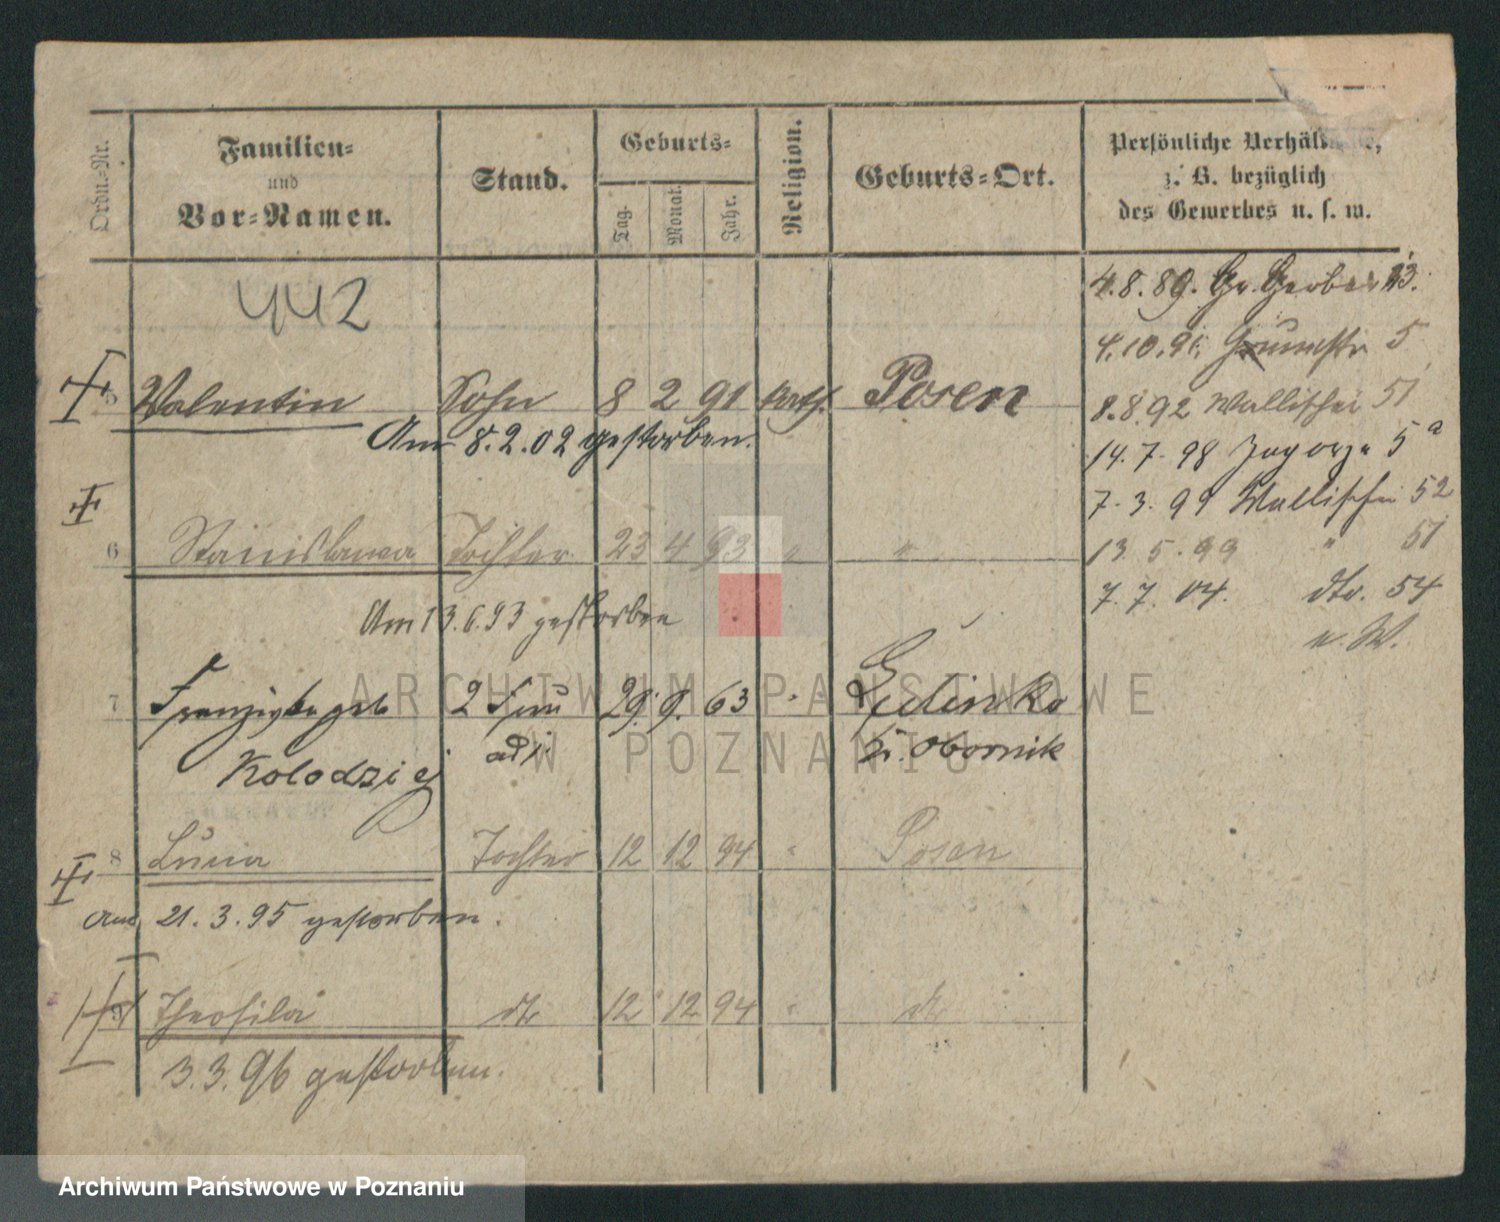 Ordn.-Nr.
Familien-
und
Vor-Namen.
Stand.
Geburts-
Tag.
Monat.
Jahr.
Religion.
Geburts-Ort.
Persönliche Verhältnisse,
z. B. bezüglich
des Gewerbes u. s. w.
442
4.8.89. Gr. Gerber 13.
4.10.91. 5
5 Valentin Sohn 8 2 91 kath. Posen
8.8.92 Wallischei 51
Am 8.2.02 gestorben.
14.7.98 Zagorze 5a
7.3.99 Wallischei 52
6 Stanislawa Tochter 23 4 93 " "
13.5.99 " 51
7.7.04. dto. 54
Am 13.6.93 gestorben
u. W.
7 Franziska geb 2 Frau 29. 9. 63 "
Kolodziej Obornik
8 Lucia Tochter 12 12 94 " Posen
Am 21.3.95 gestorben.
9 Theofila dto 12 12 94 " dto
3.3.96 gestorben.
ARCHIWUM PAŃSTWOWE
W POZNANIU
Archiwum Państwowe w Poznaniu